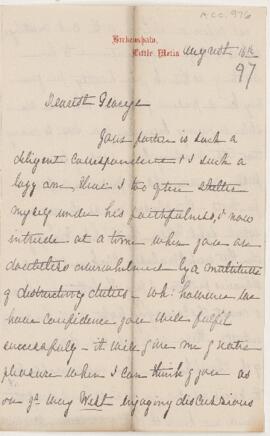 ACC. 976
Birkenshaw,
Little Metis
August 16th
97
Dearest George
Your pater is such a
diligent correspondent & I such a
lazy one, that I too often shelter
myself under his faithfulness, & now
intrude at a time when you are
doubtless overwhelmed by a multitude
of distracting duties - wh: however we
have confidence you will fulfil
successfully - it will give me greater
pleasure when I can think of you as
on yr way West enjoying discussions